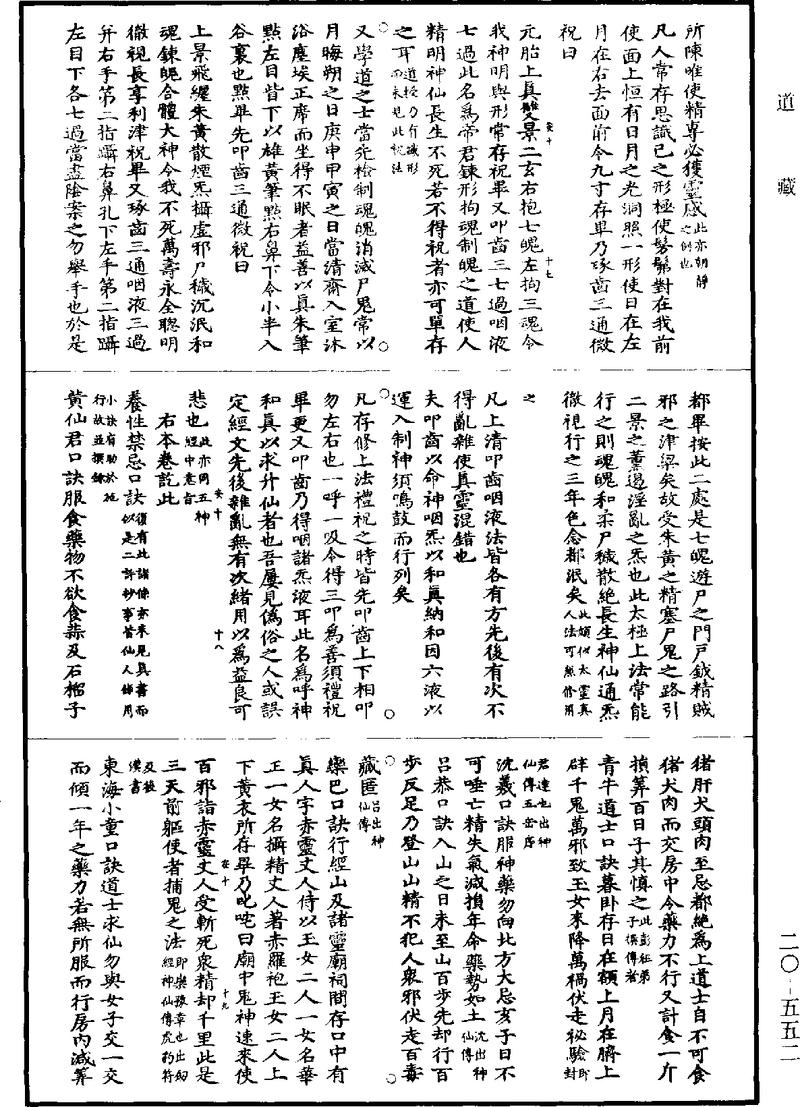 道藏
二〇—五五二
所陳唯使精專必獲靈感此亦朝靜之例也
凡人常存思識己之形極使髣髴對在我前
使面上恒有日月之光洞照一形使日在左
月在右去面前令九寸存畢乃琢齒三通微
祝曰
元胎上真雙景二玄右抱七魄左拘三魂令
我神明與形常存祝畢又叩齒三七過咽液
七過此名爲帝君鍊形拘魂制魄之道使人
精明神仙長生不死若不得祝者亦可單存
之耳道授乃有鍼形而未見此祝法
又學道之士當先檢制魂魄消滅尸鬼常以
月晦朔之日庚申甲寅之日當清齋入室沐
浴塵埃正席而坐得不眠者益善以真朱筆
點左目眥下以雄黃筆點右鼻下令小半入
谷裏也點畢先叩齒三通微祝曰
上景飛纏朱黃散煙炁攝虛邪尸穢沉泯和
魂鍊魄合體大神令我不死萬壽永全聰明
徹視長享利津祝畢又琢齒三通咽液三過
并右手第二指躡右鼻孔下左手第二指躡
左目下各七過當盡陰案之勿舉手也於是
都畢按此二處是七魄遊尸之門戶鉞精賊
邪之津梁矣故受朱黃之精塞尸鬼之路引
二景之薰遏淫亂之炁也此太極上法常能
行之則魂魄和柔尸穢散絕長生神仙通炁
徹視行之三年色念都泯矣此類似太靈真人法可無修用
之
凡上清叩齒咽液法皆各有方先後有次不
得亂雜使真靈混錯也
夫叩齒以命神咽炁以和真納和因六液以
運入制神須鳴鼓而行列矣
凡存修上法禮祝之時皆先叩齒上下相叩
勿左右也一呼一吸令得三叩爲善須禮祝
畢更又叩齒乃得咽諸炁液耳此名爲呼神
和真以求升仙者也吾屢見僞俗之人或誤
定經文先後雜亂無有次緒用以爲益良可
悲也此亦同五神經中卷者
右本卷訖此
養性禁忌口訣後有此諸條亦未見真書而以是二許抄事皆仙人條用小訣有助於施行故並撰錄
黃仙君口訣服食藥物不欲食蒜及石榴子
猪肝犬頭肉至忌都絕爲上道士自不可食
猪犬肉而交房中令藥力不行又計食一斤
損筭百日子其慎之此彭祖弟子撰傳者
青牛道士口訣暮卧存日在額上月在臍上
辟千鬼萬邪致玉女來降萬禍伏走祕驗即封君達也出神仙傳五岳序
沈羲口訣服神藥勿向北方大忌亥子日不
可唾亡精失氣減損年命藥勢如土沈出神仙傳
呂恭口訣入山之日未至山百步先却行百
步反足乃登山山精不犯人衆邪伏走百毒
藏匿呂出神仙傳
欒巴口訣行經山及諸靈廟祠間存口中有
真人字赤靈丈人侍以玉女二人一女名華
正一女名攝精丈人著赤羅袍玉女二人上
下黃衣所存畢乃叱咤曰廟中鬼神速來使
百邪詣赤靈丈人受斬死衆精却千里此是
三天前驅使者捕鬼之法即欒豫章也出劍經神仙傳虎豹符及後漢書
東海小童口訣道士求仙勿與女子交一交
而傾一年之藥力若無所服而行房內減筭